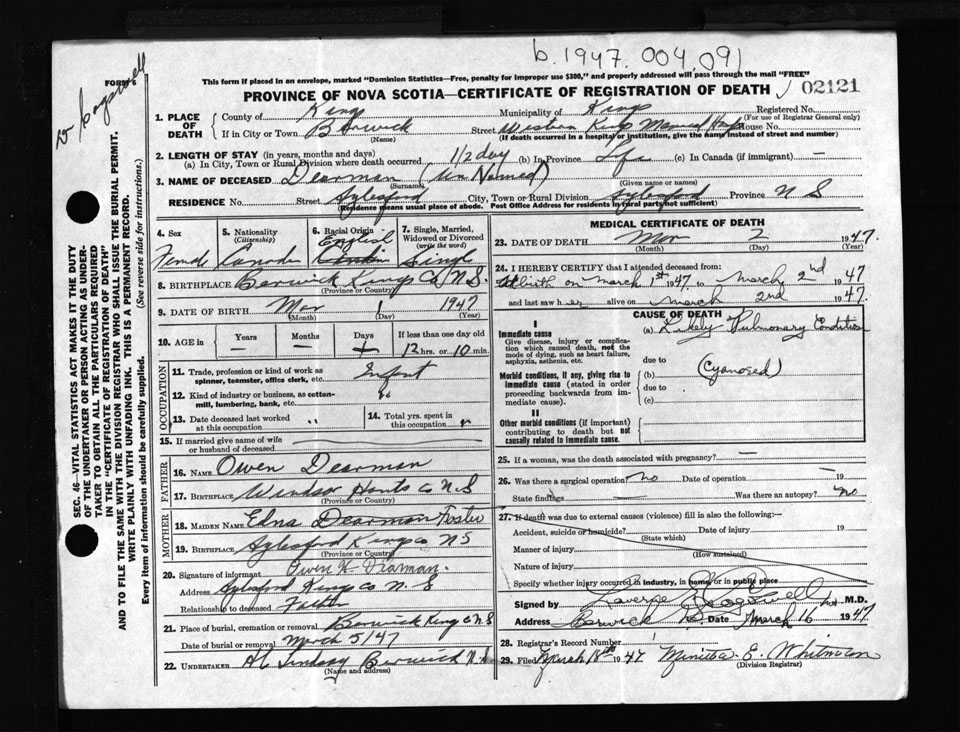 b. 1947. 004.091
FORM 6
This form if placed in an envelope, marked "Dominion Statistics—Free, penalty for improper use $300," and properly addressed will pass through the mail "FREE"
PROVINCE OF NOVA SCOTIA—CERTIFICATE OF REGISTRATION OF DEATH
02121
Dr Cogswell
SEC. 46—VITAL STATISTICS ACT MAKES IT THE DUTY
OF THE UNDERTAKER OR PERSON ACTING AS UNDER-
TAKER TO OBTAIN ALL THE PARTICULARS REQUIRED
IN THE "CERTIFICATE OF REGISTRATION OF DEATH"
AND TO FILE THE SAME WITH THE DIVISION REGISTRAR WHO SHALL ISSUE THE BURIAL PERMIT.
WRITE PLAINLY WITH UNFADING INK. THIS IS A PERMANENT RECORD.
Every item of information should be carefully supplied. (See reverse side for instructions.)
1. PLACE OF DEATH
County of Kings Municipality of Kings Registered No.
(For use of Registrar General only)
If in City or Town Berwick Street Western Kings Memorial House No.
(Name) (If death occurred in a hospital or institution, give the name instead of street and number)
2. LENGTH OF STAY (in years, months and days)
(a) In City, Town or Rural Division where death occurred 1/2 day (b) In Province Life (c) In Canada (if immigrant) —
3. NAME OF DECEASED Dearman (Un Named)
(Surname) (Given name or names)
RESIDENCE No. Street Aylesford City, Town or Rural Division Aylesford Province N S
(Residence means usual place of abode. Post Office Address for residents in rural parts not sufficient)
4. Sex Female
5. Nationality (Citizenship) Canadian
6. Racial Origin English
7. Single, Married, Widowed or Divorced (write the word) Single
8. BIRTHPLACE Berwick Kings Co N.S.
(Province or Country)
9. DATE OF BIRTH Mar 1 1947
(Month) (Day) (Year)
10. AGE in Years — Months — Days + If less than one day old 12 hrs. or 10 min.
OCCUPATION
11. Trade, profession or kind of work as spinner, teamster, office clerk, etc. Infant
12. Kind of industry or business, as cotton-mill, lumbering, bank, etc. "
13. Date deceased last worked at this occupation "
14. Total yrs. spent in this occupation "
15. If married give name of wife or husband of deceased
FATHER
16. NAME Owen Dearman
17. BIRTHPLACE Windsor Hants Co N.S
(Province or Country)
MOTHER
18. MAIDEN NAME Edna Dearman Foster
19. BIRTHPLACE Aylesford Kings Co N S
(Province or Country)
20. Signature of informant Owen K. Dearman.
Address Aylesford Kings Co N. S
Relationship to deceased Father
21. Place of burial, cremation or removal Berwick Kings Co N.S
Date of burial or removal March 5/47
22. UNDERTAKER Lindsay Berwick N.S.
(Name and address)
MEDICAL CERTIFICATE OF DEATH
23. DATE OF DEATH Mar 2 1947.
(Month) (Day) (Year)
24. I HEREBY CERTIFY that I attended deceased from:
At birth on March 1st 1947 to March 2nd 1947
and last saw her alive on March 2nd 1947.
CAUSE OF DEATH
I
Immediate cause
Give disease, injury or complication which caused death, not the mode of dying, such as heart failure, asphyxia, asthenia, etc.
(a) Likely Pulmonary Condition
due to
Morbid conditions, if any, giving rise to immediate cause (stated in order proceeding backwards from immediate cause).
(b) (Cyanosed)
due to
(c)
II
Other morbid conditions (if important) contributing to death but not causally related to immediate cause.
25. If a woman, was the death associated with pregnancy? —
26. Was there a surgical operation? no Date of operation 19
State findings Was there an autopsy? no
27. If death was due to external causes (violence) fill in also the following:—
Accident, suicide or homicide? Date of injury 19
(State which)
Manner of injury
(How sustained)
Nature of injury
Specify whether injury occurred in industry, in home, or in public place
Signed by Laverge Cogswell M.D.
Address Berwick Date March 16 1947
28. Registrar's Record Number 1
29. Filed March 18th 1947 E. Whitman
(Division Registrar)